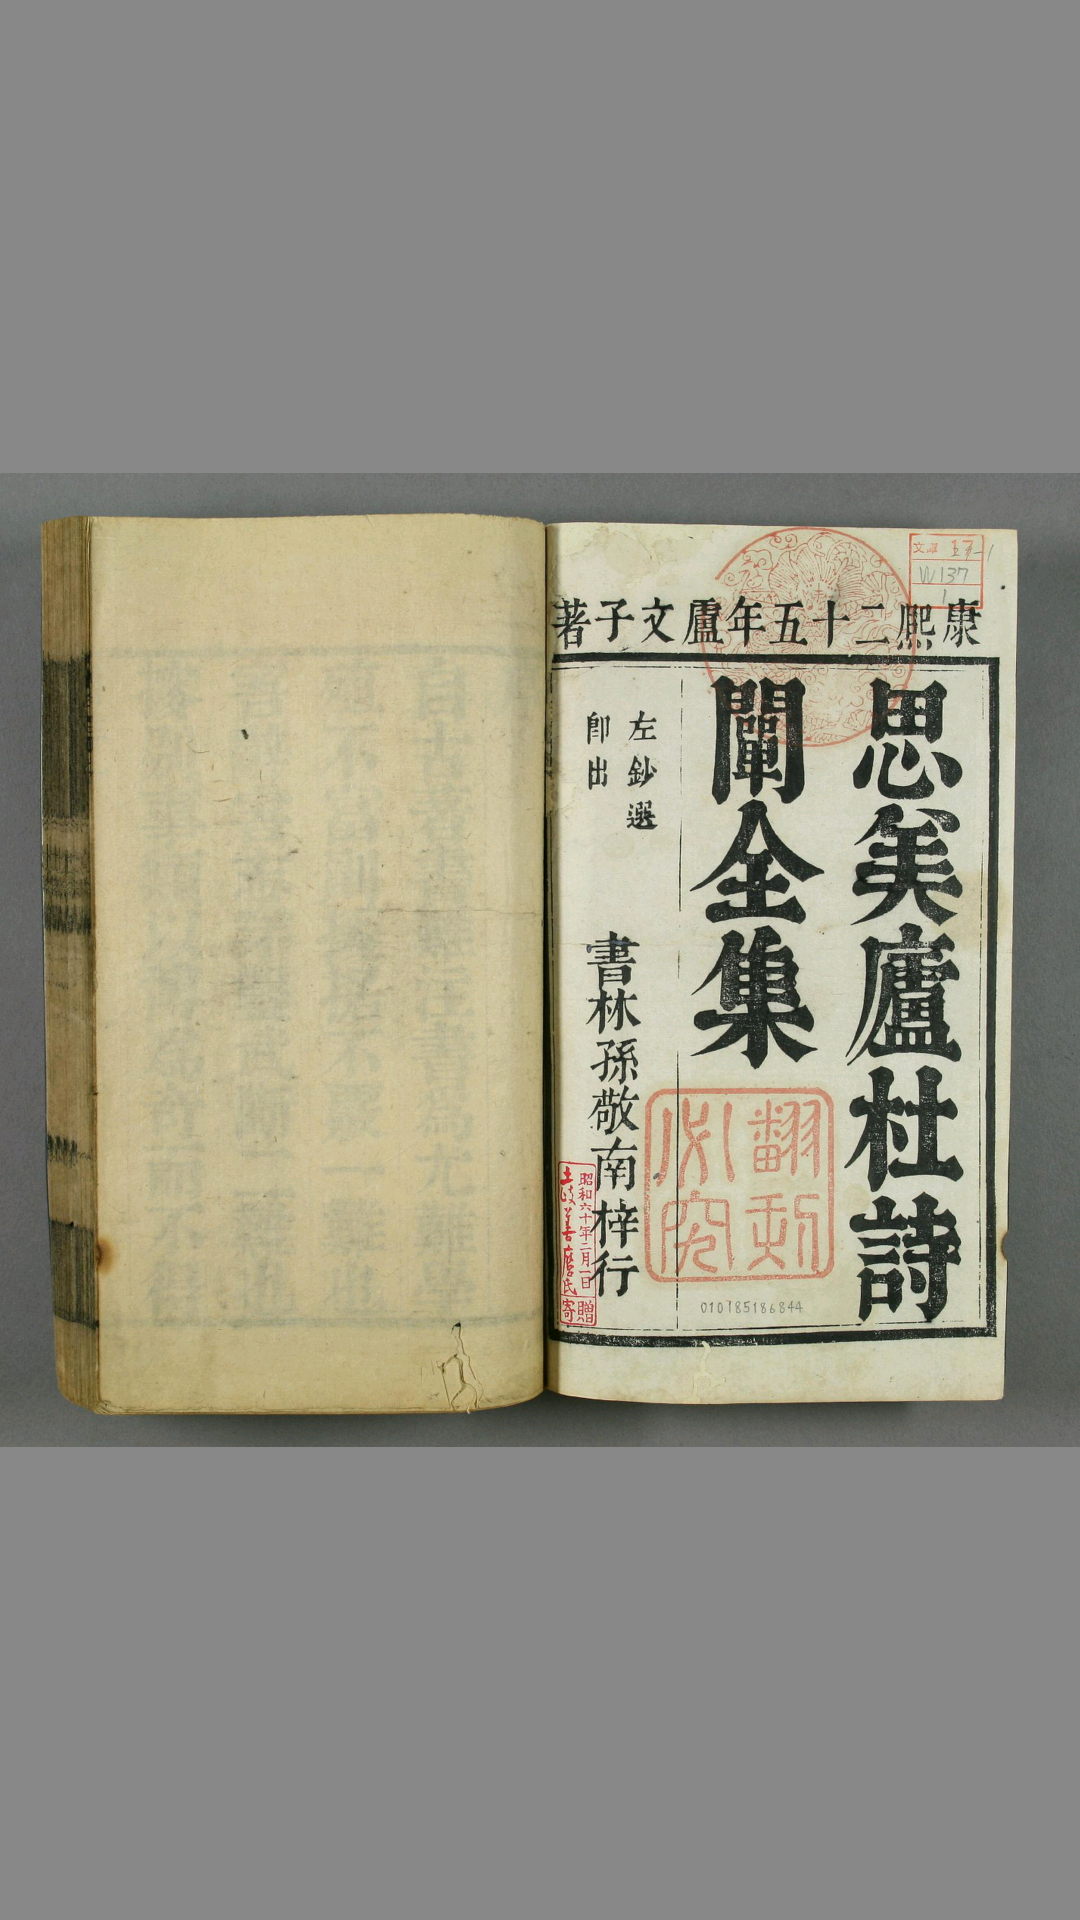 康熙二十五年盧文子著
思美廬杜詩
闡全集
左鈔選
即出
書林孫敬南梓行
翻刻
必究
文庫 17
W137
1
昭和六十年二月一日
土岐善麿氏
寄贈
010185186844